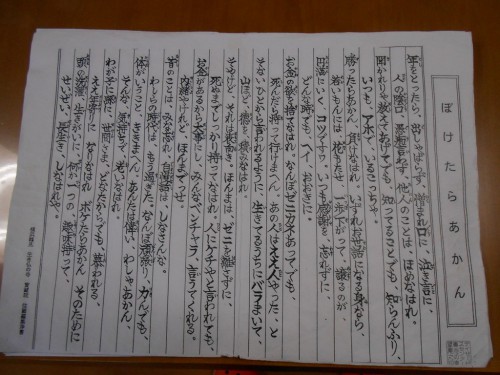 ぼけたらあかん
年をとったら、出しゃばらず、憎まれ口に、泣き言に、
人の陰口、悪口言わず、他人のことは、ほめなはれ。
聞かれりゃ教えてあげてでも、知ってることでも、知らんふり、
いつも、アホで、いるこっちゃ。
勝ったらあかん、負けなはれ、いずれお世話になる身なら、
若いもんには、花もたせ、一歩さがって、譲るのが、
円満にいく、コツですわ。いつも感謝を、忘れずに、
どんな時でも、へイ、おおきに。
お金の欲を、捨てなはれ、なんぼゼニカネあってでも、
死んだら持って行けまへん。あの人は、ええ人やった、と
そないひとから言われるように、生きてるうちに、バラまいて、
山ほど、徳を、積みなはれ。
そやけど、それは表向き、ほんまは、ゼニを、離さずに、
死ぬまでしっかり、持ってなはれ。人にケチやと言われても、
お金があるから大事にし、みんな、ベンチャラ、言うてくれる、
内緒やけれど、ほんまでっせ。
昔のことは、みな忘れ、自慢話は、しなさんな、
わしらの時代は、もう過ぎた。なんぼ頑張り、力んでも、
体がいうこと、ききまへん。あんたは偉い、わしゃあかん、
そんな、気持ちで、おりなはれ。
わが子に孫に、世間さま、どなたからでも、慕われる、
ええ年寄りに、なりなはれ。ボケたらあかん、そのために
頭の洗濯、生きがいに、何か一つの、趣味持って、
せいぜい、長生き、しなはれや。